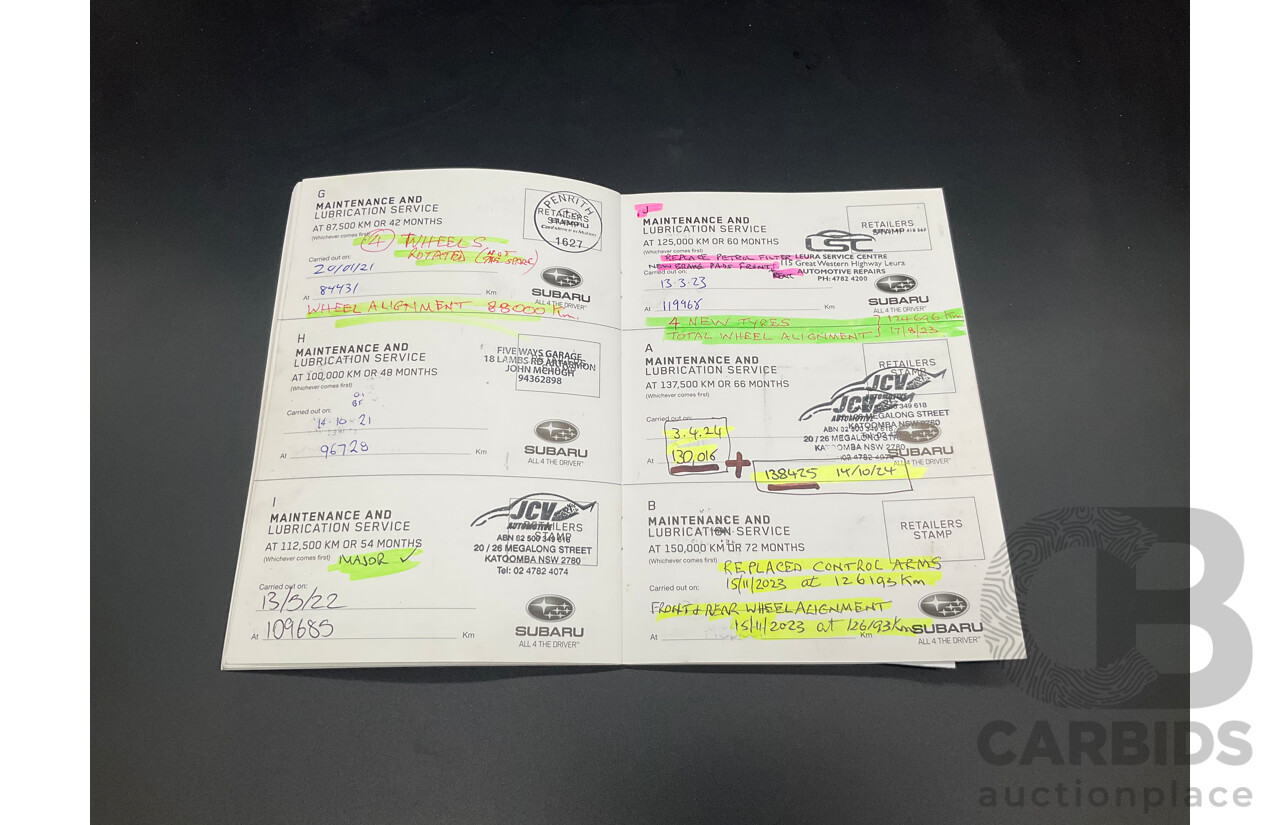 G
MAINTENANCE AND
LUBRICATION SERVICE
AT 87,500 KM OR 42 MONTHS
(Whichever comes first)
4 WHEELS
ROTATED (NOT THE SPARE)
PENRITH
RETAILERS
STAMP
SUBARU
1627
Carried out on:
20/01/21
At 84431 Km
SUBARU
ALL 4 THE DRIVER
WHEEL ALIGNMENT 88000 Km.
H
MAINTENANCE AND
LUBRICATION SERVICE
AT 100,000 KM OR 48 MONTHS
(Whichever comes first)
FIVE WAYS GARAGE
18 LAMBS RD ARTARMON
JOHN MCHUGH
94362898
Carried out on:
14·10·21
At 96728 Km
SUBARU
ALL 4 THE DRIVER
I
MAINTENANCE AND
LUBRICATION SERVICE
AT 112,500 KM OR 54 MONTHS
(Whichever comes first)
MAJOR ✓
JCV
AUTOMOTIVE
RETAILERS
STAMP
ABN 62 500 349 618
20 / 26 MEGALONG STREET
KATOOMBA NSW 2780
Tel: 02 4782 4074
Carried out on:
13/5/22
At 109685 Km
SUBARU
ALL 4 THE DRIVER
J
MAINTENANCE AND
LUBRICATION SERVICE
AT 125,000 KM OR 60 MONTHS
(Whichever comes first)
RETAILERS
STAMP
LSC
LEURA SERVICE CENTRE
115 Great Western Highway Leura
AUTOMOTIVE REPAIRS
PH: 4782 4200
REPLACE PETROL FILTER
NEW BRAKE PADS FRONT &
REAR
Carried out on:
13·3·23
At 119968 Km
SUBARU
ALL 4 THE DRIVER
4 NEW TYRES } 124696 Km
TOTAL WHEEL ALIGNMENT } 17/8/23
A
MAINTENANCE AND
LUBRICATION SERVICE
AT 137,500 KM OR 66 MONTHS
(Whichever comes first)
RETAILERS
STAMP
JCV
AUTOMOTIVE
JCV
AUTOMOTIVE
349 618
26 MEGALONG STREET
KATOOMBA NSW 2780
ABN 62 500 349 618
20 / 26 MEGALONG STREET
KATOOMBA NSW 2780
02 4782 4074
Carried out on:
3.4.24
At 130,016
+
138425 14/10/24
SUBARU
ALL 4 THE DRIVER
B
MAINTENANCE AND
LUBRICATION SERVICE
AT 150,000 KM OR 72 MONTHS
(Whichever comes first)
RETAILERS
STAMP
REPLACED CONTROL ARMS
15/11/2023 at 126193 Km
Carried out on:
FRONT & REAR WHEEL ALIGNMENT
15/11/2023 at 126193 Km
At Km
SUBARU
ALL 4 THE DRIVER
CARBIDS
auctionplace